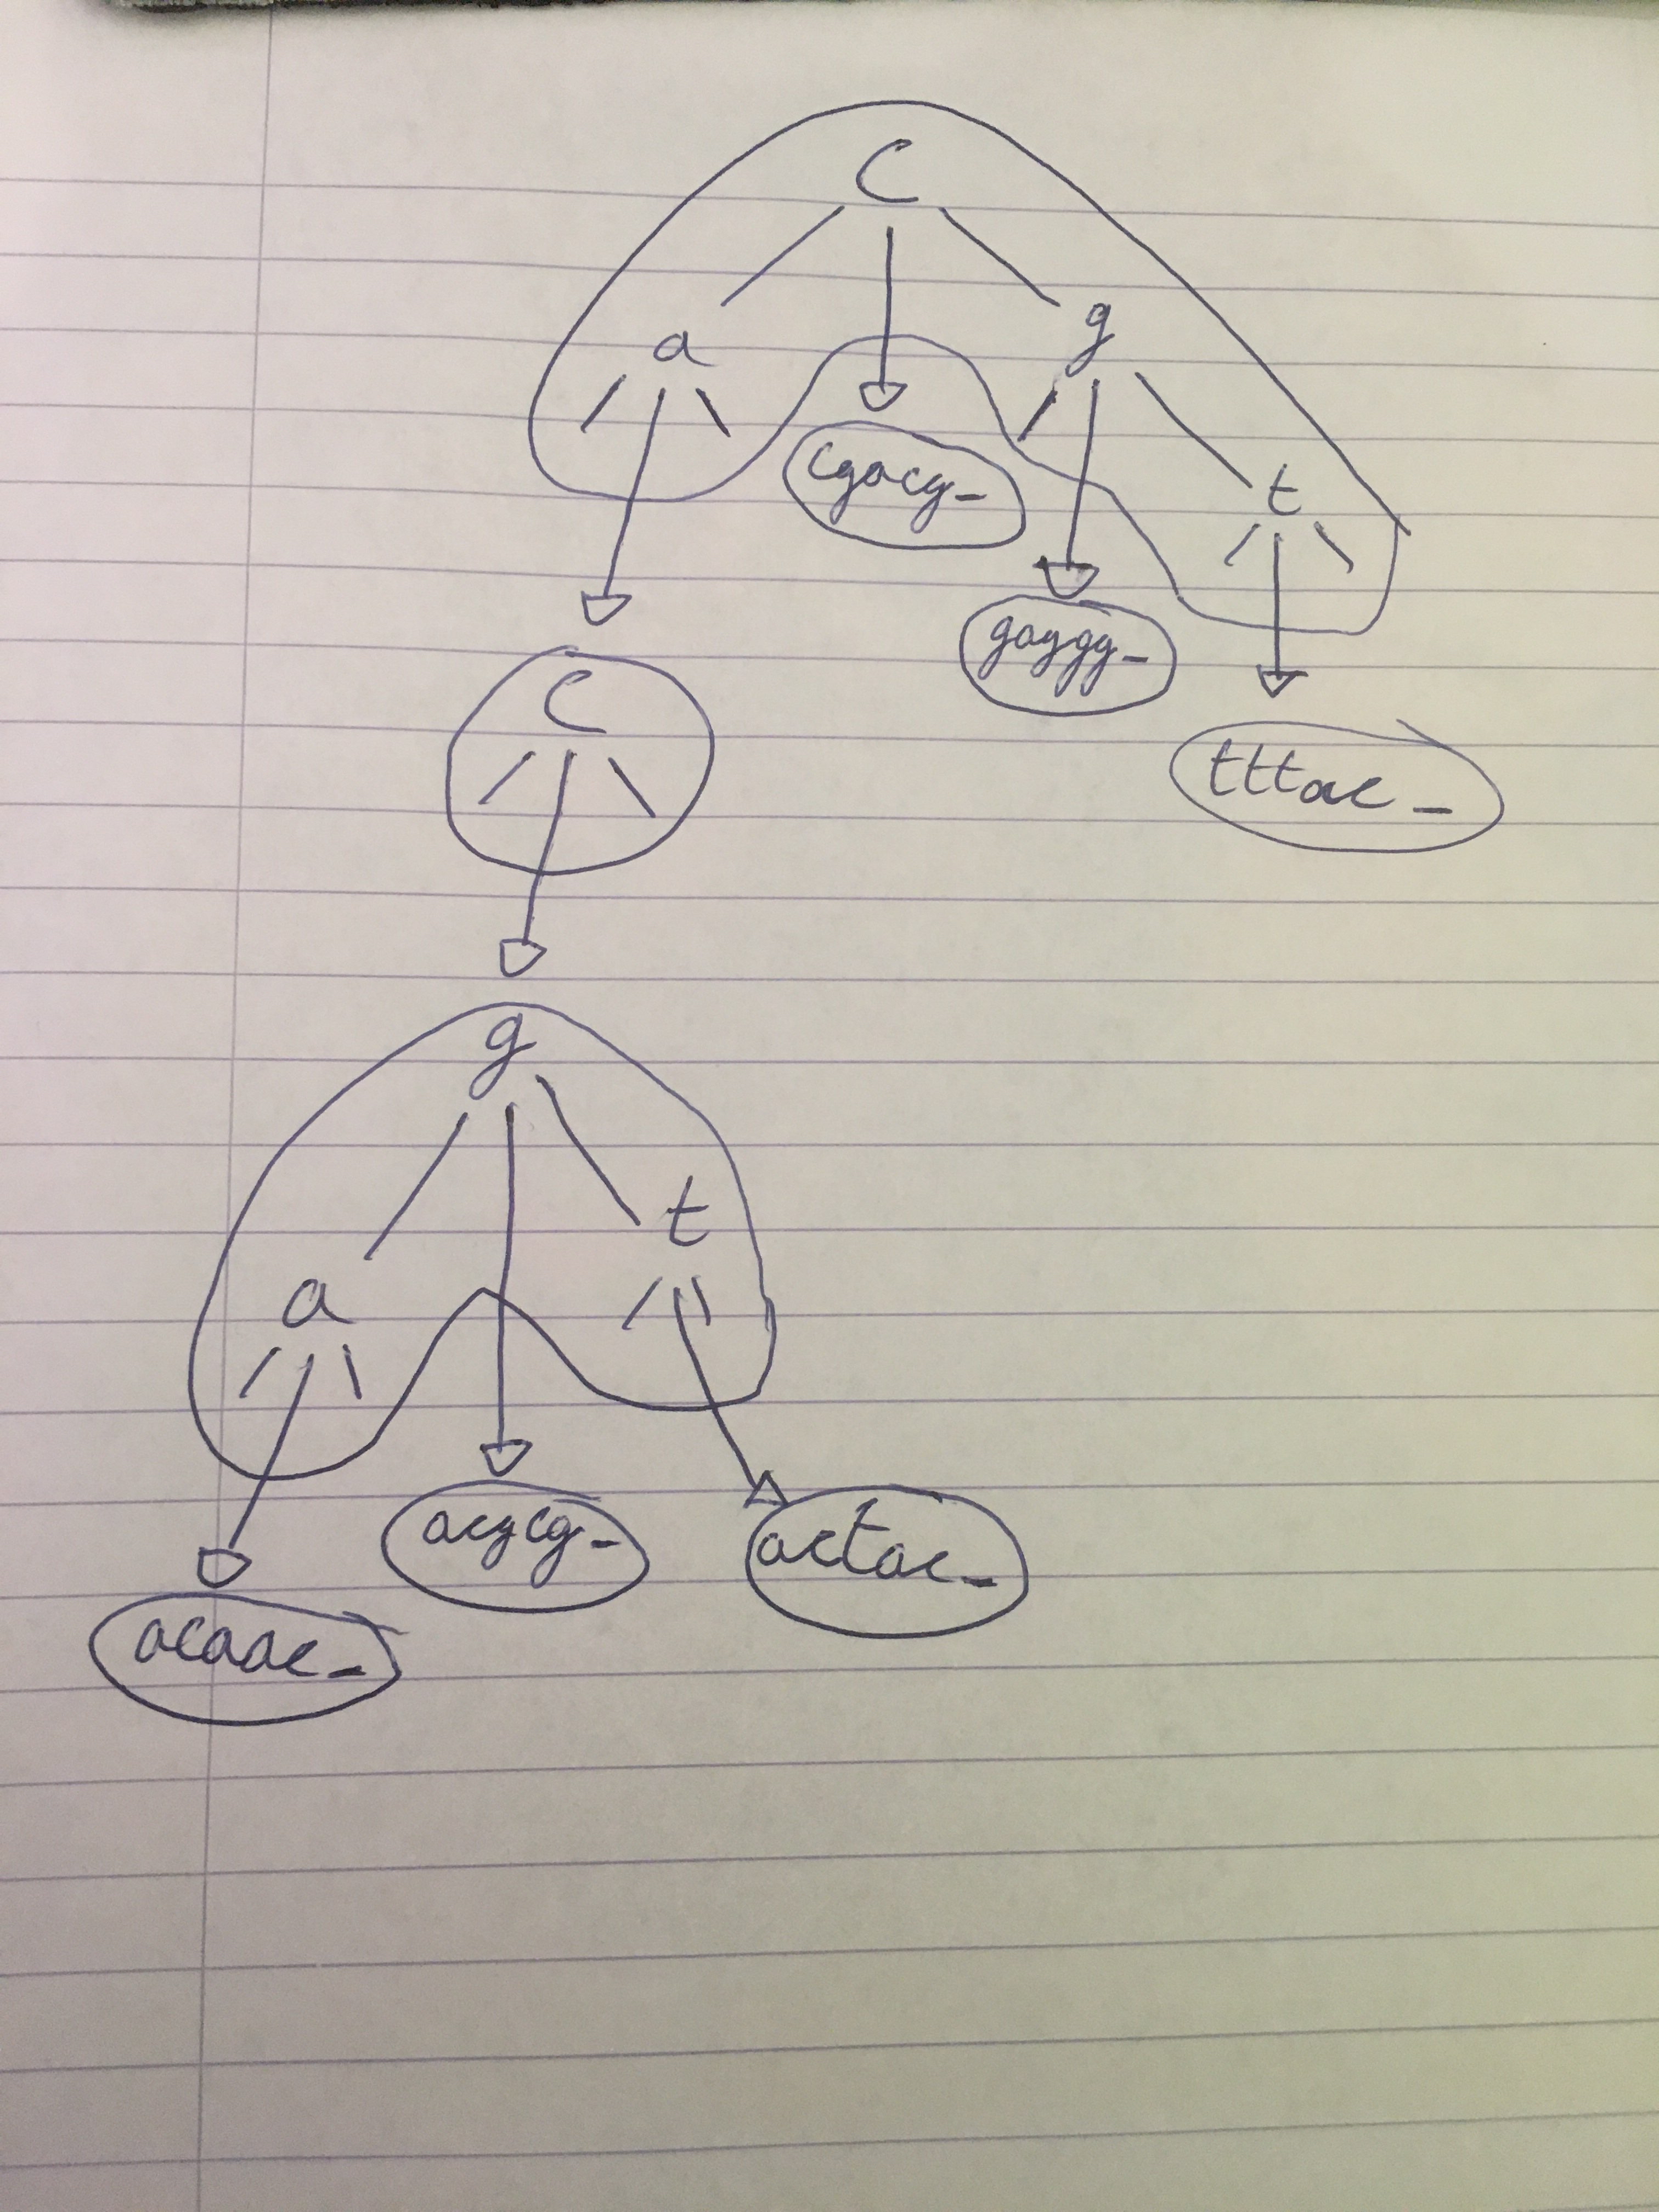 C
a g
cgacg_ t
gaggg_
C tttac_
g
a t
acgcg_ actac_
acaac_